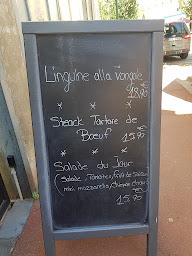 Linguine alla Vongole
18.90
* * *
Steack Tartare de
Boeuf
15.90
* * *
Salade du Jour
(Salade, Tomates,
mini mozzarella,
15.90